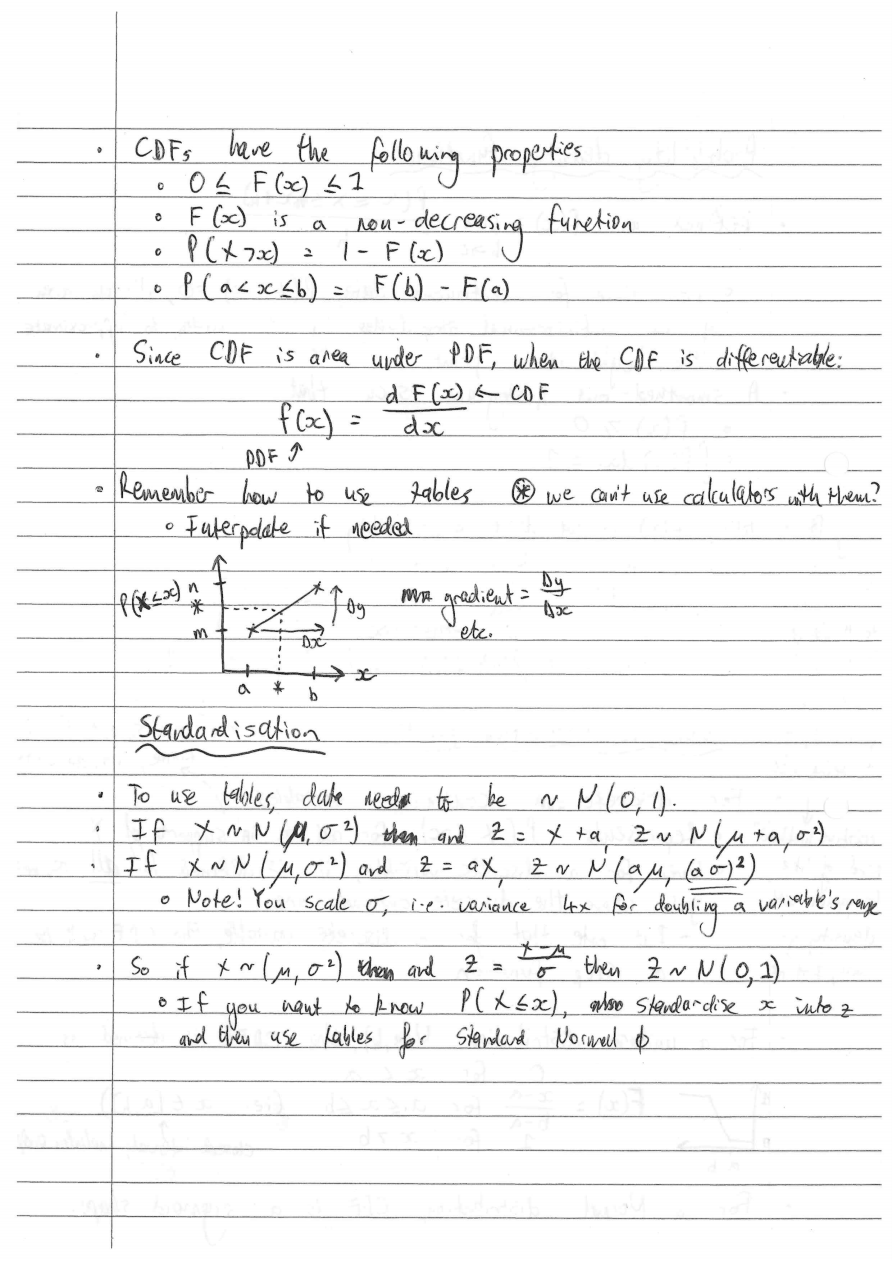 · CDFs have the following properties
∘ 0 ≤ F(x) ≤ 1
∘ F(x) is a non-decreasing function
∘ P(X>x) = 1 - F(x)
∘ P(a<x≤b) = F(b) - F(a)
· Since CDF is area under PDF, when the CDF is differentiable:
f(x) = d F(x) / dx ← CDF
PDF ↑
· Remember how to use tables ⊛ we can't use calculators with them?
∘ Interpolate if needed
P(X≤x) n * m Δy Δx gradient = Δy/Δx
etc.
a * b x
Standardisation
· To use tables, data needs to be ~ N(0,1).
· If X ~ N(μ, σ²) and Z = X + a, Z ~ N(μ+a, σ²)
· If X ~ N(μ, σ²) and Z = aX, Z ~ N(aμ, (aσ)²)
∘ Note! You scale σ, i.e. variance 4x for doubling a variable's range
· So if X ~ (μ, σ²) and Z = X-μ/σ then Z ~ N(0,1)
∘ If you want to know P(X≤x), standardise x into z
and then use tables for Standard Normal ϕ